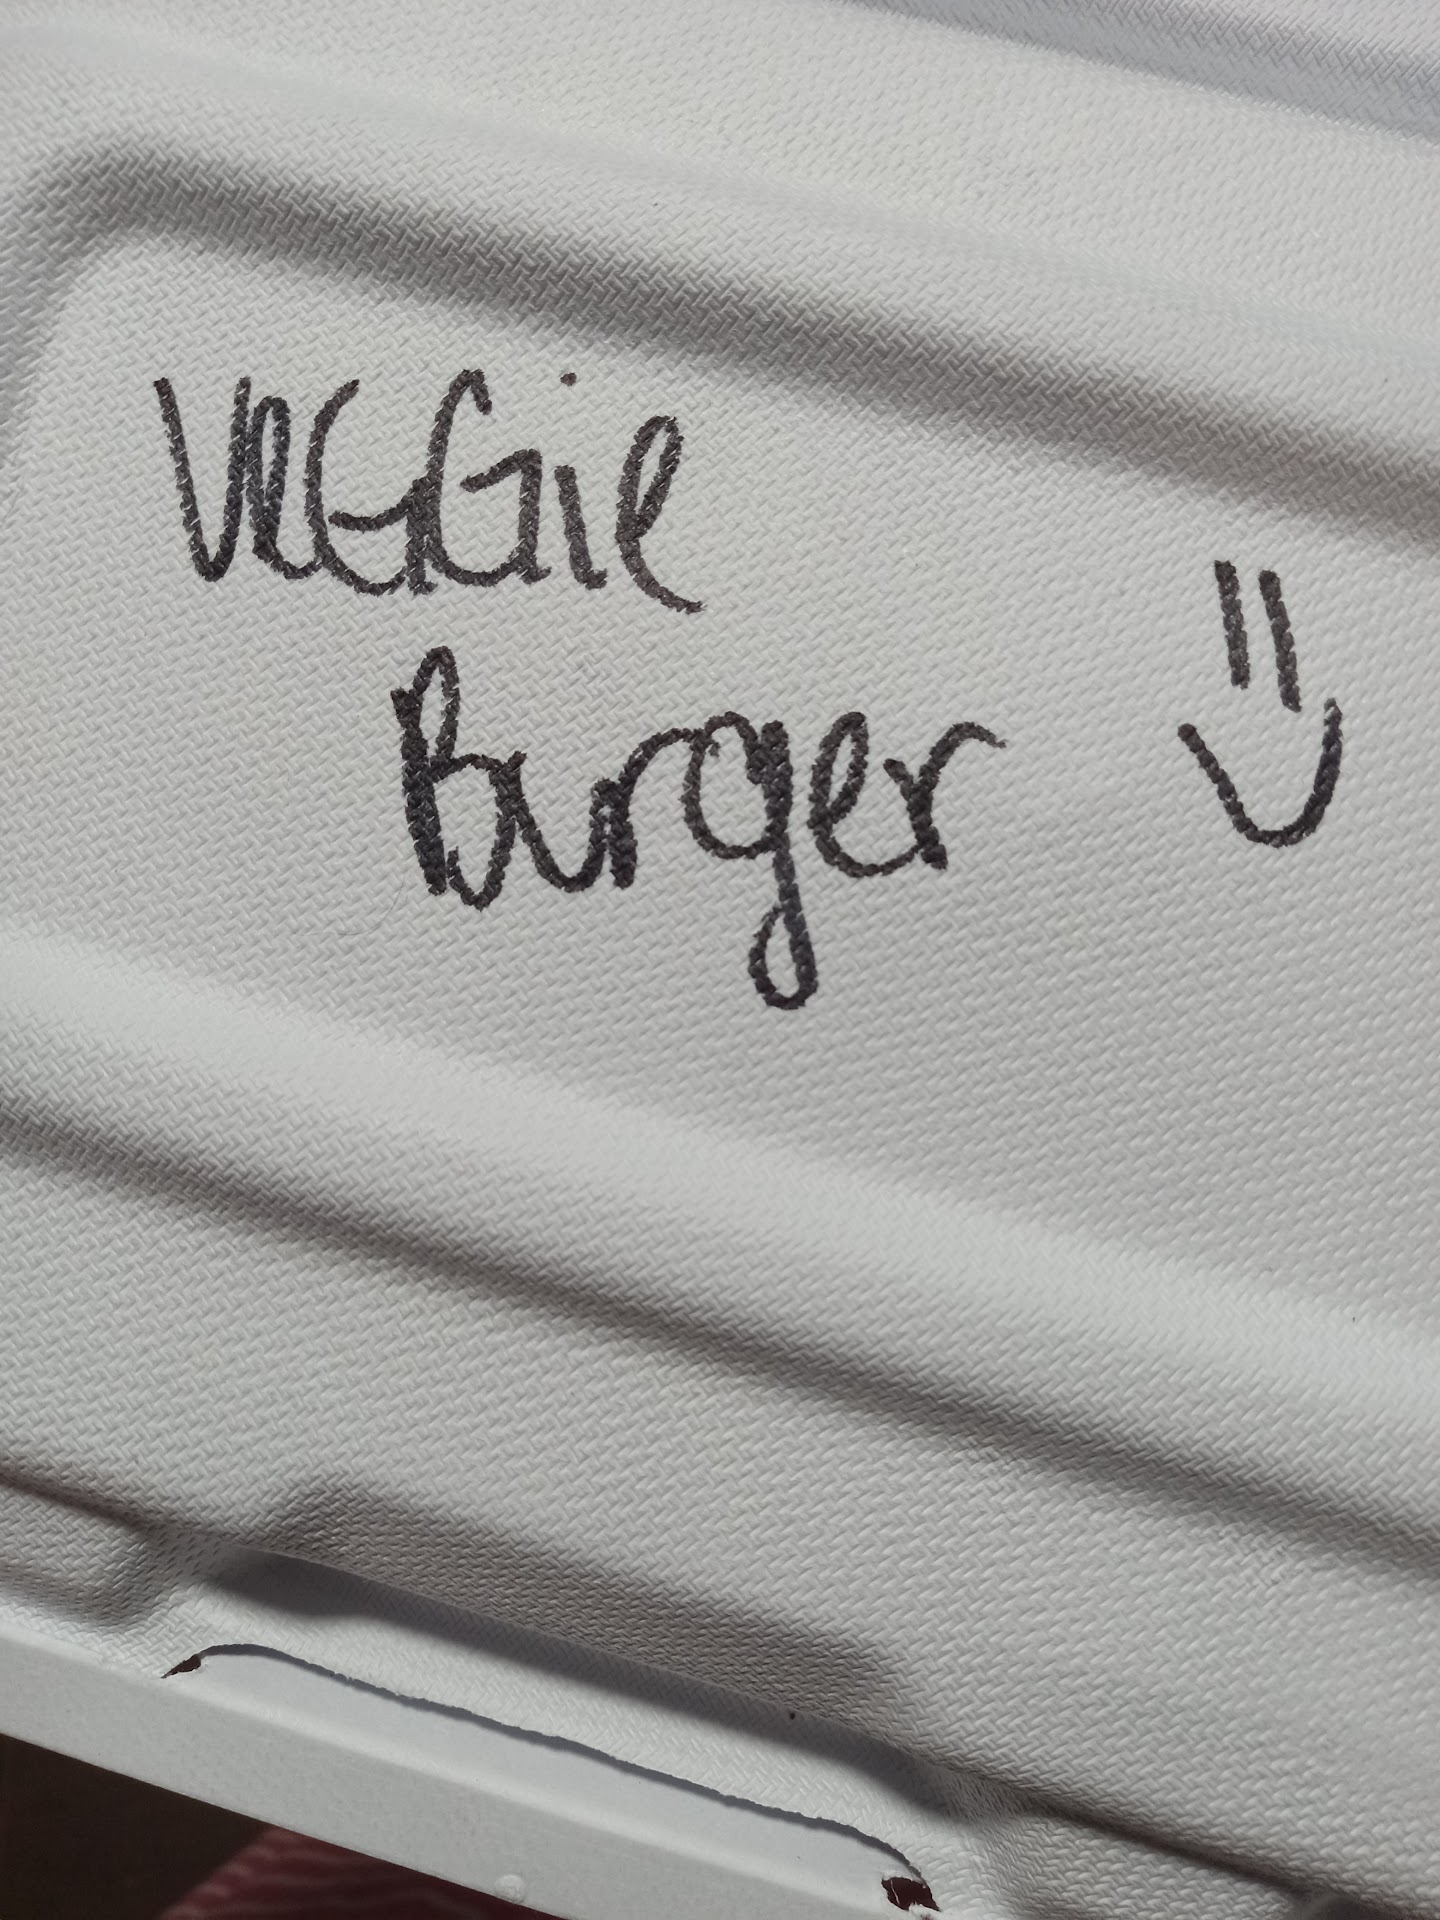 VeGGie
Burger